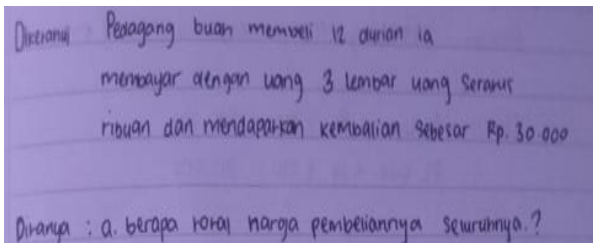 Diketahui Pedagang buah membeli 12 durian ia
membayar dengan uang 3 lembar uang seratus
ribuan dan mendapatkan kembalian sebesar Rp. 30.000
Ditanya : a. berapa total harga pembeliannya seluruhnya.?